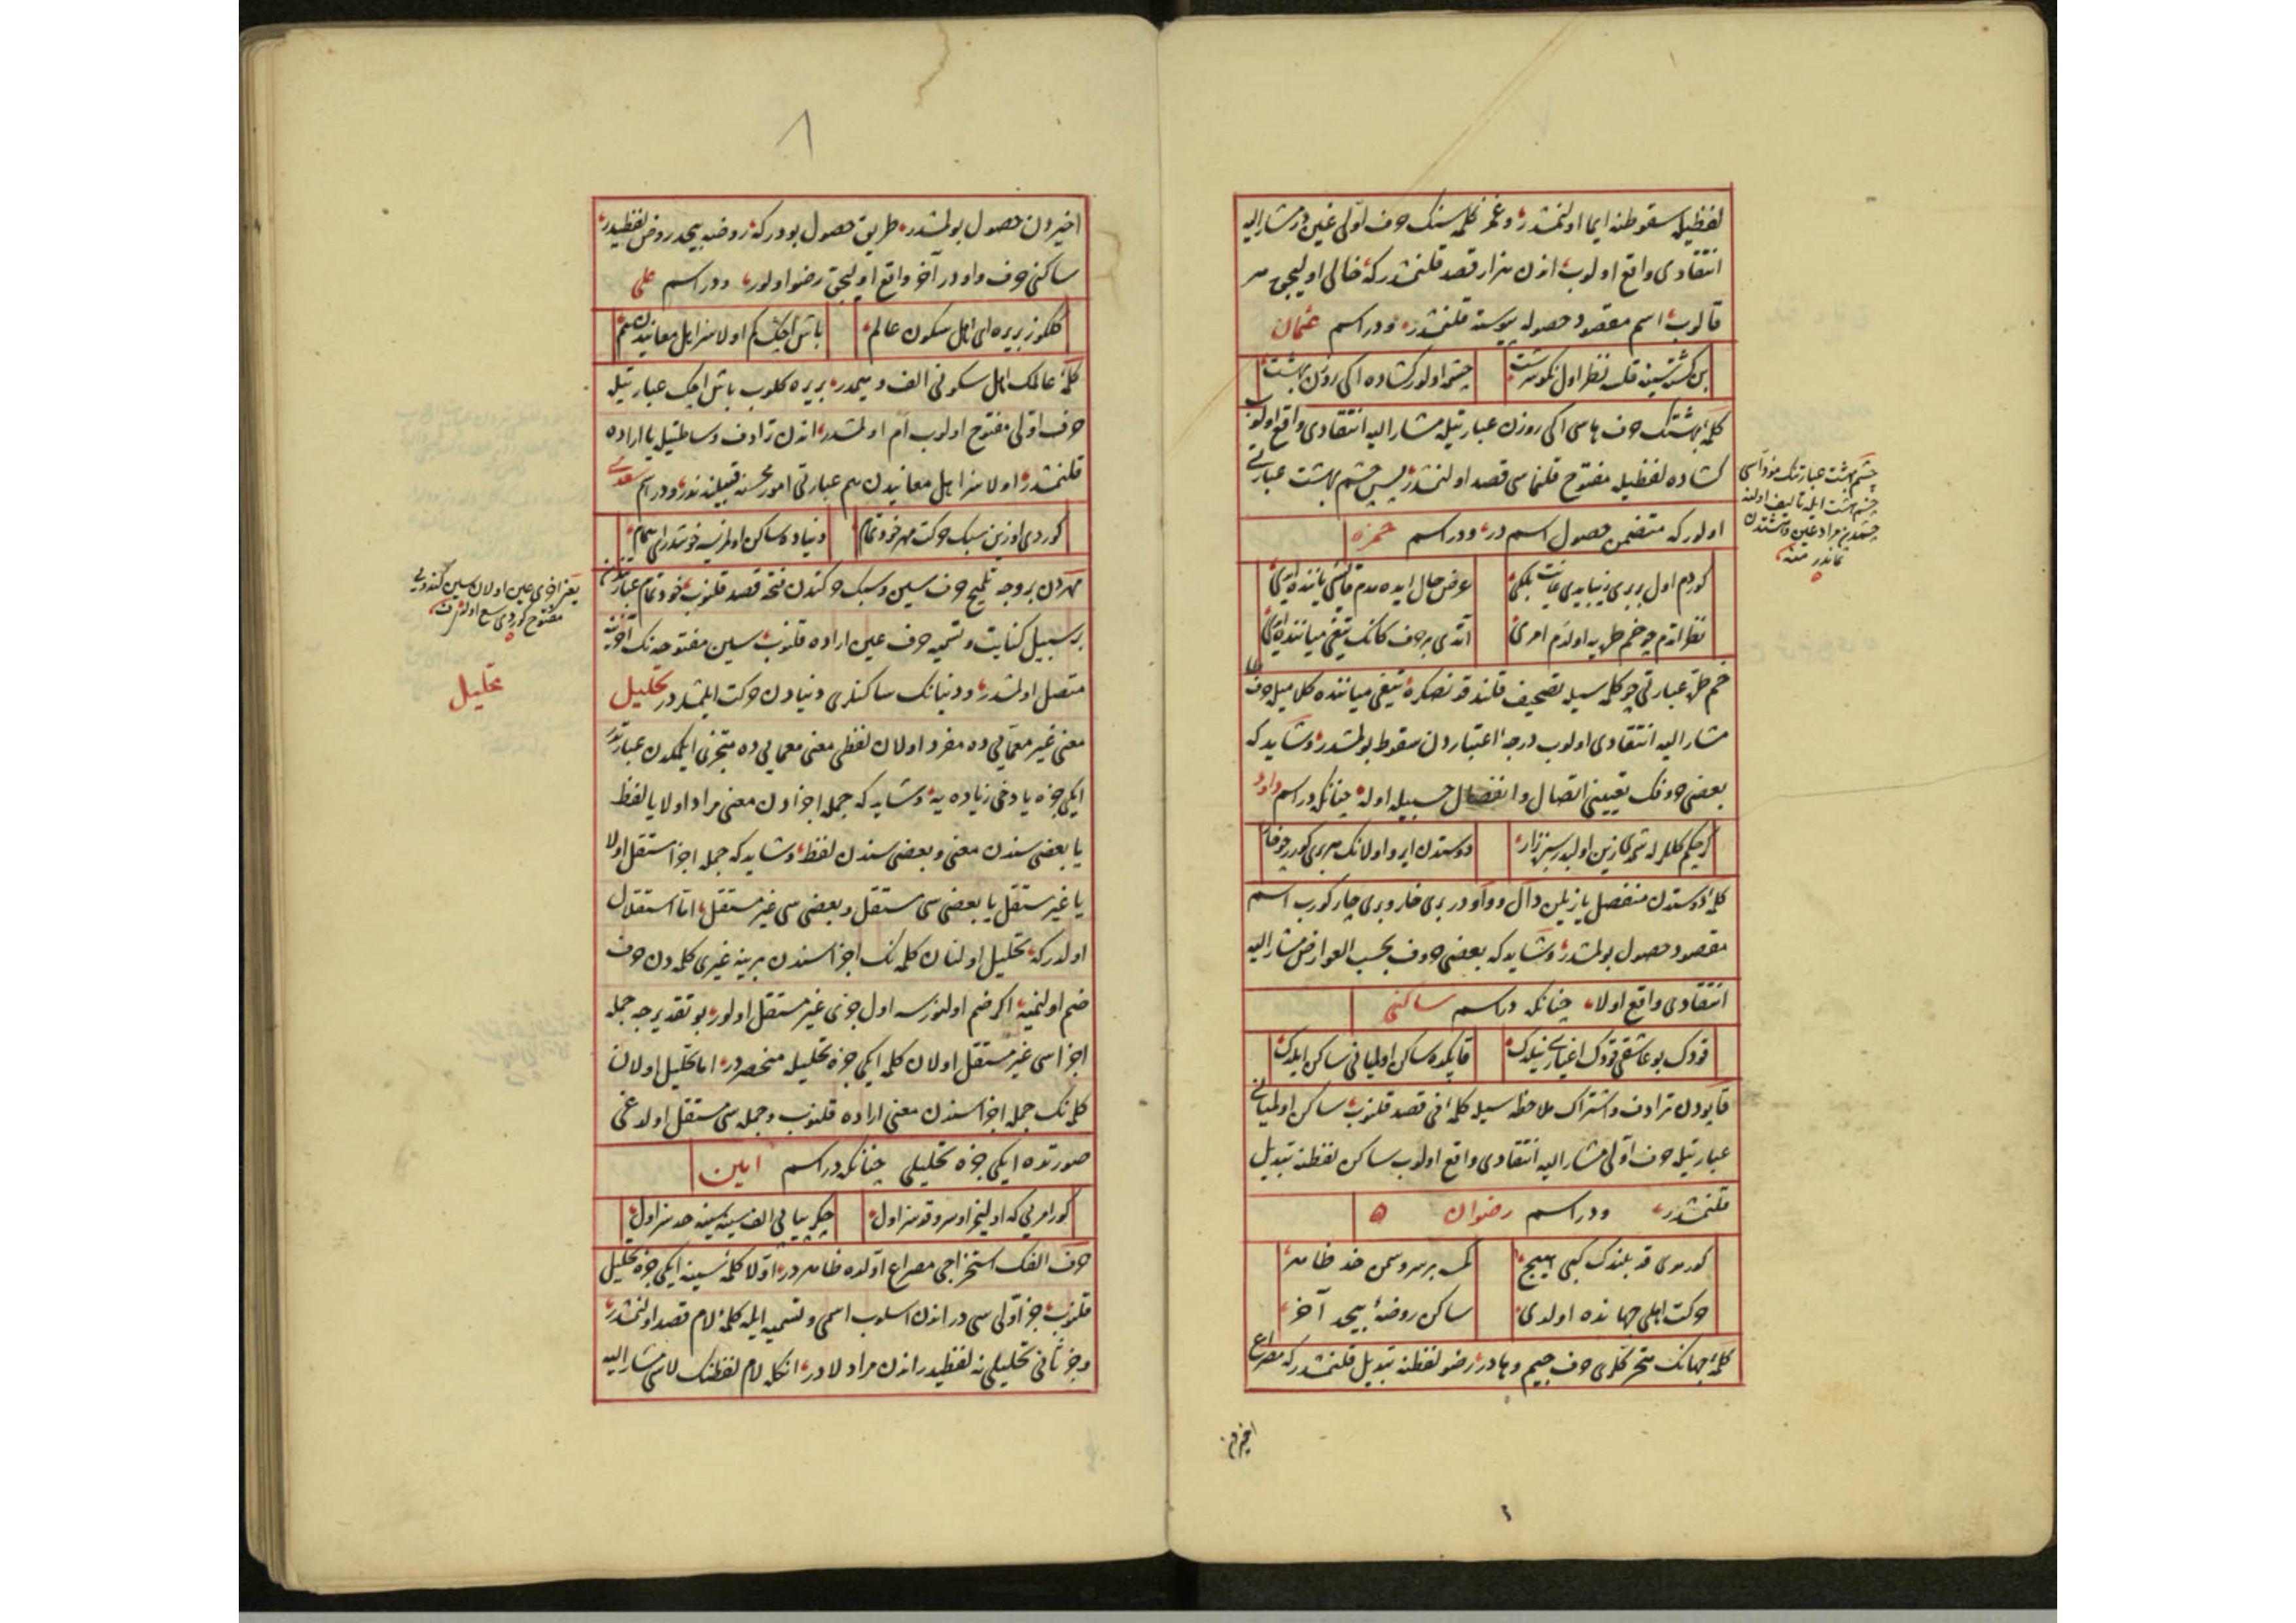 لفظیله سقوطنه ایما اولنمشدر وغمز کلمه سنک حرف اولی غین در مشار الیه
انتقادی واقع اولوب اندن هزار قصد قلنمشدر که خالی اولیجق هر
قالوب اسم مقصود حصوله پیوسته قلنمشدر ودر اسم عثمان
قلب نظر اول
چشم اولور کشاده ایکی روزن بهشت
کلمهٔ بهشتک حرف هاسی ایکی روزن عبارتیله مشار الیه انتقادی واقع اولوب
کشاده لفظیله مفتوح قلنماسی قصد اولنمشدر پس چشم بهشت عبارتی
اولور که متضمن حصول اسم در ودر اسم حمزه
کوردم اول بری
عرض حال ایده مدم
نظر اتدم
اتدی بر حرف
عبارتی کلمه سیله تصحیف قلندقدنصکره تیغی میاننده کلامیله حرف
مشار الیه انتقادی اولوب درجهٔ اعتباردن سقوط بولمشدر وشاید که
بعضی حروفک تعیینی اتصال وانفصال حسبیله اوله چنانکه در اسم داود
دوستدن ایرو اولانک
کلمهٔ دوستدن منفصل یازیلن دال وواو در بری خار وبری چار کورب اسم
مقصود حصول بولمشدر وشاید که بعضی حروف بحسب العوارض مشار الیه
انتقادی واقع اولا چنانکه در اسم ساکنی
قودک بو عاشقی قودک اغیاری نیلدک
قاپکده ساکن اولمیانی ساکن ایلدک
قاپودن ترادف واشتراک ملاحظه سیله کلمهٔ فی قصد قلنوب ساکن اولمیانی
عبارتیله حرف اولی مشار الیه انتقادی واقع اولوب ساکن لفظنه تبدیل
قلنمشدر ودر اسم رضوان
کورمدی قد بلندک کبی هیچ
کمسه بر سرو سمن خد ظاهر
حرکت اهلی جهانده اولدی
ساکن روضهٔ بیحد آخر
کلمهٔ جهانک متحرکلری حرف جیم وهادر رضو لفظنه تبدیل قلنمشدر که مصراع
اخیردن
چشم بهشت عبارتنک
چشم بهشت ایله تألیف اولنه
چشمدن مراد عین وبهشتدن
ثماندر منه
٨
اخیردن حصول بولمشدر طریق حصول بودر که روضه بیحد روض لفظیدر
ساکنی حرف واو در آخر واقع اولیجق رضو اولور ودر اسم علی
کلکز بریره ای اهل سکون عالم
باش اچک کم اولا سزا اهل معانیدن هم
کلمهٔ عالمک اهل سکونی الف ومیمدر بریره کلوب باش اچک عبارتیله
حرف اولی مفتوح اولوب اَم اولمشدر اندن ترادف وساطتیله یا اراده
قلنمشدر اولا سزا اهل معانیدن هم عبارتی امور محسنه قبیلندندر ودر اسم سعدی
کوردی اوزین سبک حرکت مهر خود تمام
دنیاده ساکن اولمز نسه خوشدر ای همام
مهردن بر وجه تلمیح حرف سین وسبک حرکتدن فتحه قصد قلنوب خود تمام عبارتندن
بر سبیل کنایت وتسمیه حرف عین اراده قلنوب سین مفتوحه نک آخرینه
متصل اولمشدر ودنیانک ساکنلری دنیادن حرکت ایلمشدر تحلیل
معنی غیر معمایی ده مفرد اولان لفظی معنی معمایی ده متجزی ایلمکدن عبارتدر
ایکی جزه یا دخی زیاده یه وشاید که جمله اجزادن معنی مراد اولا یا لفظ
یا بعضی سندن معنی وبعضی سندن لفظ وشاید که جمله اجزا مستقل اولا
یا غیر مستقل یا بعضی سی مستقل وبعضی سی غیر مستقل اما استقلال
اولدر که تحلیل اولنان کلمه نک اجزاسندن برینه غیری کلمه دن حرف
ضم اولنمیه اکر ضم اولنورسه اول جزی غیر مستقل اولور بو تقدیرجه جمله
اجزاسی غیر مستقل اولان کلمه ایکی جزه تحلیله منحصردر اما تحلیل اولان
کلمه نک جمله اجزاسندن معنی اراده قلنوب وجمله سی مستقل اولدغی
صورتده ایکی جزه تحلیلی چنانکه در اسم امین
حرف الفک استخراجی مصراع اولده ظاهردر اولا کلمهٔ سینه ایکی جزه تحلیل
قلنوب جز اولی سی در اندن اسلوب اسمی وتسمیه ایله کلمهٔ لام قصد اولنمشدر
وجز ثانی تحلیلی نه لفظیدر اندن مراد لادر انکله لام لفظنک لاسی مشار الیه
یعنی اخری عین اولان سین کندویی
مفتوح کوردی سع اولور
تحلیل